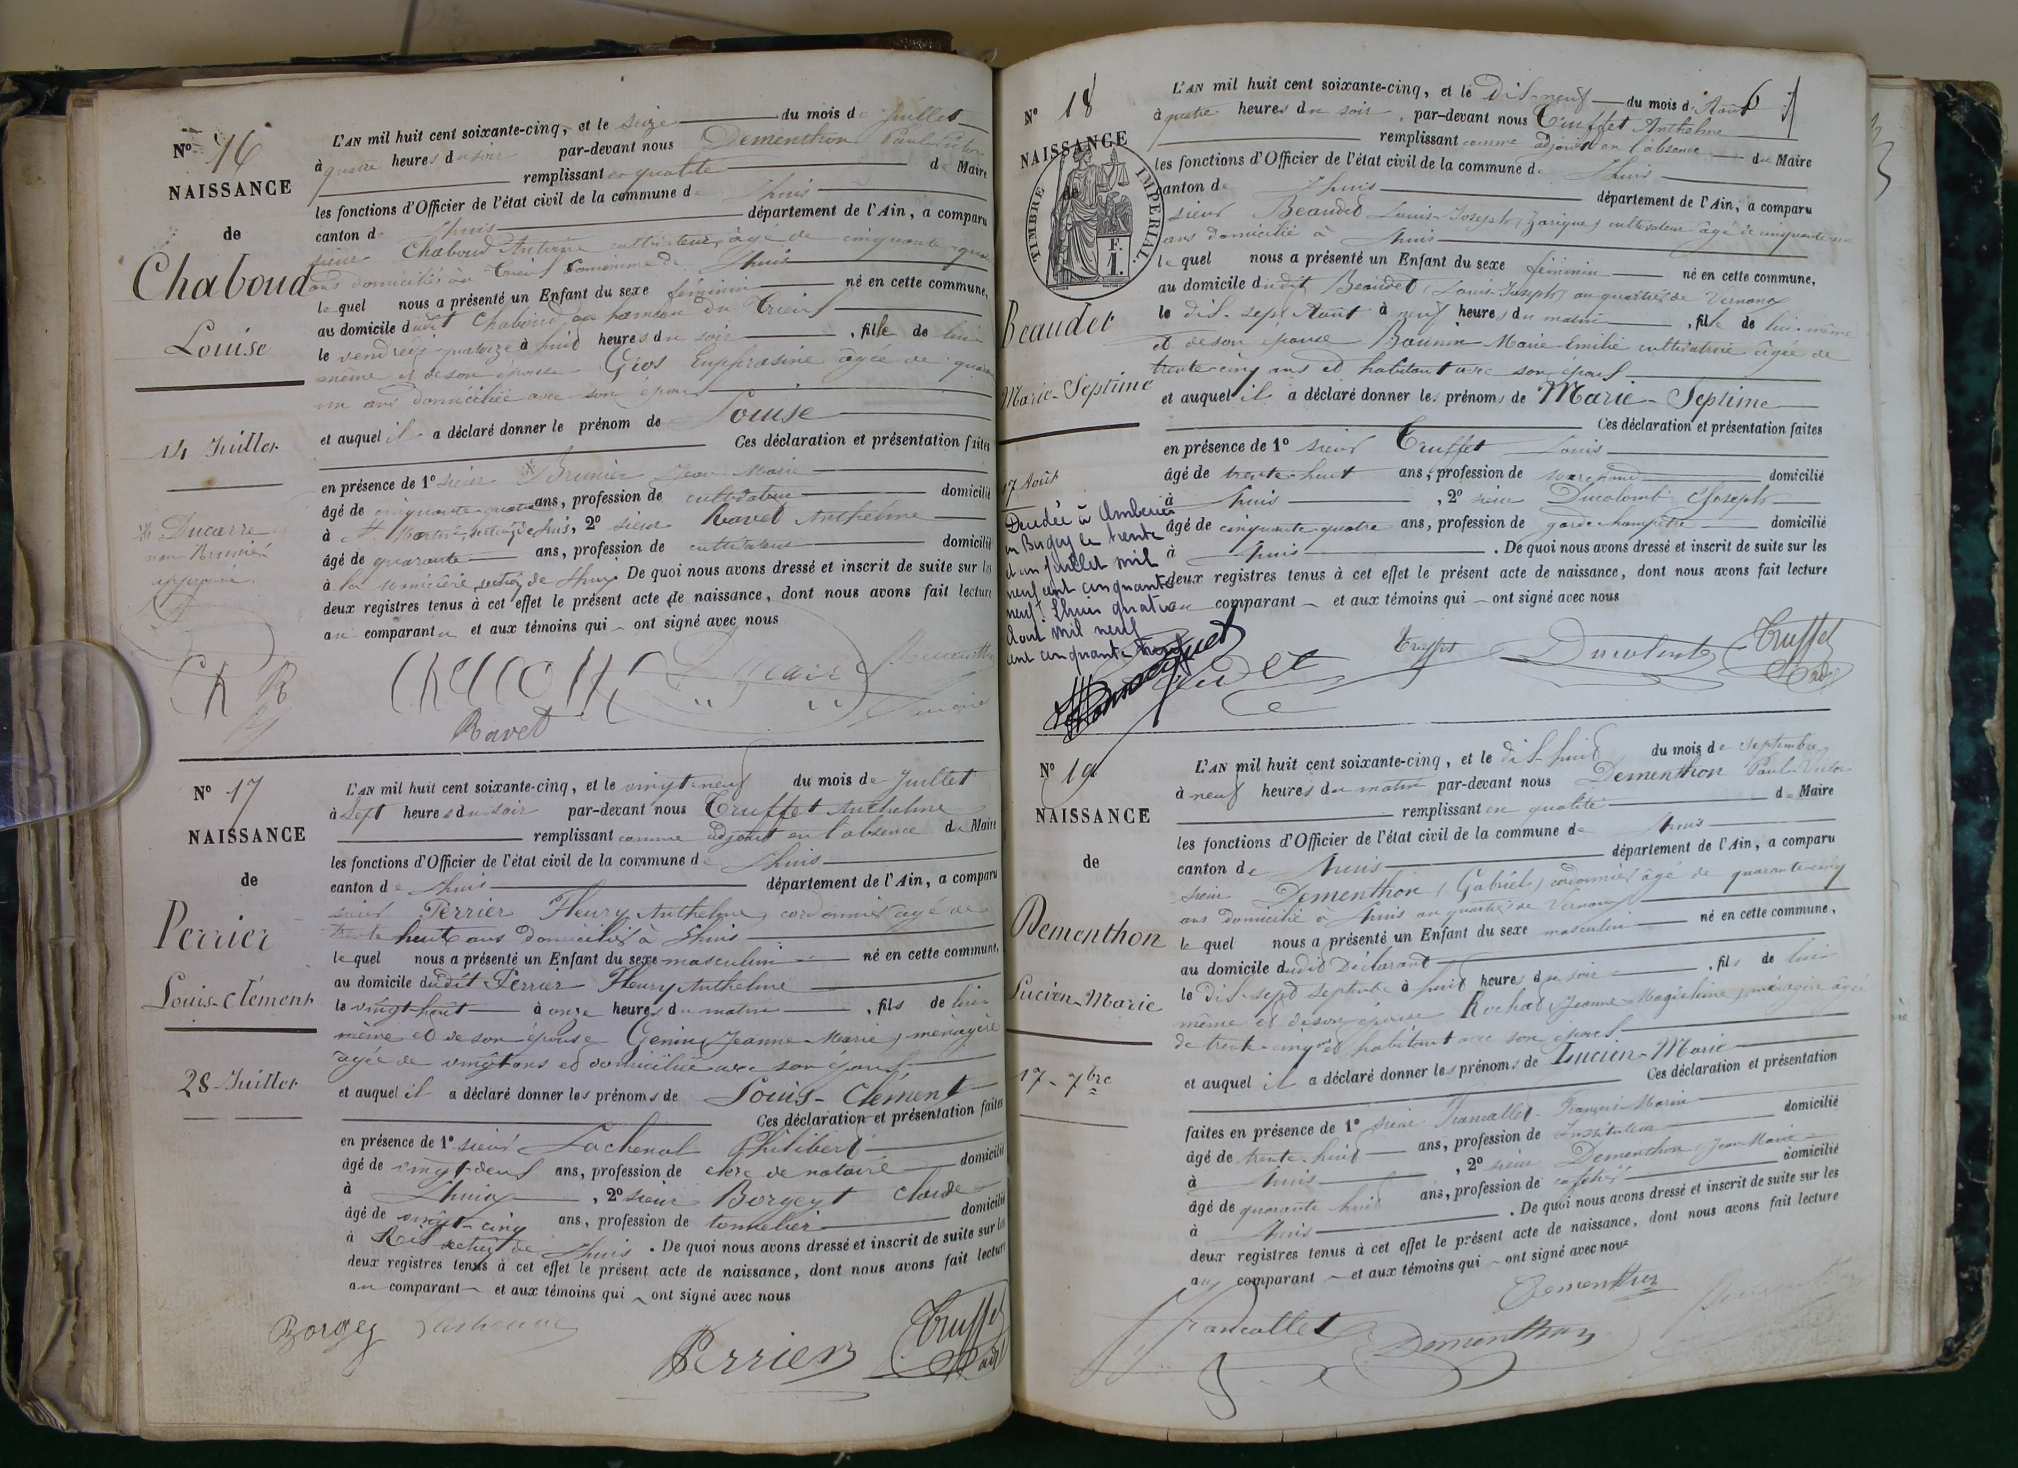 N° 16
NAISSANCE
de
Chaboud
Louise
14 Juillet
Ducarre
non Brunier
approuvé
L'AN mil huit cent soixante-cinq, et le seize du mois de Juillet
à quatre heures du soir par-devant nous Dementhon Paul-Victor
remplissant en qualité de Maire
les fonctions d'Officier de l'état civil de la commune de Lhuis
canton de Lhuis département de l'Ain, a comparu
sieur Chaboud Antoine cultivateur, âgé de cinquante quatre
ans domicilié au Creux commune de Lhuis
lequel nous a présenté un Enfant du sexe féminin né en cette commune,
au domicile dudit Chaboud au hameau du Creux
le vendredi quatorze à huit heures du soir, fille de lui
même et de son épouse Gros Euphrasine âgée de quarante
un ans domiciliée avec son époux
et auquel il a déclaré donner le prénom de Louise
Ces déclaration et présentation faites
en présence de 1° sieur Brunier Jean Marie
âgé de cinquante quatre ans, profession de cultivateur domicilié
à St Martin section de Lhuis, 2° sieur Ravet Anthelme
âgé de quarante ans, profession de cultivateur domicilié
à la section de Lhuis. De quoi nous avons dressé et inscrit de suite sur les
deux registres tenus à cet effet le présent acte de naissance, dont nous avons fait lecture
au comparant et aux témoins qui ont signé avec nous
Ravet
N° 17
NAISSANCE
de
Perrier
Louis-Clément
28-Juillet
L'AN mil huit cent soixante-cinq, et le vingt-neuf du mois de Juillet
à sept heures du soir par-devant nous Truffet Anthelme
remplissant comme adjoint en l'absence de Maire
les fonctions d'Officier de l'état civil de la commune de Lhuis
canton de Lhuis département de l'Ain, a comparu
sieur Perrier Fleury Anthelme, cordonnier âgé de
trente huit ans domicilié à Lhuis
lequel nous a présenté un Enfant du sexe masculin né en cette commune,
au domicile dudit Perrier Fleury Anthelme
le vingt-huit à onze heures du matin, fils de lui
même et de son épouse Genin Jeanne-Marie, ménagère
âgée de vingt ans et domiciliée avec son époux
et auquel il a déclaré donner les prénoms de Louis-Clément
Ces déclaration et présentation faites
en présence de 1° sieur Lachenal Philibert
âgé de vingt-deux ans, profession de clerc de notaire domicilié
à Lhuis, 2° sieur Borgeyt Claude
âgé de vingt-cinq ans, profession de tonnelier domicilié
à section de Lhuis. De quoi nous avons dressé et inscrit de suite sur les
deux registres tenus à cet effet le présent acte de naissance, dont nous avons fait lecture
au comparant et aux témoins qui ont signé avec nous
Borgey Perrier Truffet
N° 18
NAISSANCE
de
TIMBRE IMPERIAL
F.
1.
Beaudet
Marie-Septime
17 Août
Décédée à Ambérieu
en Bugey le trente
et un juillet mil
neuf cent cinquante
neuf. Lhuis quatre
Août mil neuf
cent cinquante neuf
6
L'AN mil huit cent soixante-cinq, et le dix-neuf du mois d'Août
à quatre heures du soir, par-devant nous Truffet Anthelme
remplissant comme adjoint en l'absence de Maire
les fonctions d'Officier de l'état civil de la commune de Lhuis
canton de Lhuis département de l'Ain, a comparu
sieur Beaudet Louis-Joseph cultivateur âgé de cinquante
ans domicilié à Lhuis
lequel nous a présenté un Enfant du sexe féminin né en cette commune,
au domicile dudit Beaudet (Louis-Joseph) au quartier de Vernans
le dix-sept Août à neuf heures du matin, fille de lui-même
et de son épouse Bounin Marie-Emilie cultivatrice âgée de
trente cinq ans et habitant avec son époux
et auquel il a déclaré donner les prénoms de Marie-Septime
Ces déclaration et présentation faites
en présence de 1° sieur Truffet Louis
âgé de trente huit ans, profession de domicilié
à Lhuis, 2° sieur Ducolomb Joseph
âgé de cinquante-quatre ans, profession de garde champêtre domicilié
à Lhuis. De quoi nous avons dressé et inscrit de suite sur les
deux registres tenus à cet effet le présent acte de naissance, dont nous avons fait lecture
au comparant et aux témoins qui ont signé avec nous
Truffet Ducolomb Truffet
N° 19
NAISSANCE
de
Dementhon
Lucien-Marie
17-7bre
L'AN mil huit cent soixante-cinq, et le dix-huit du mois de septembre
à neuf heures du matin par-devant nous Dementhon Paul-Victor
remplissant en qualité de Maire
les fonctions d'Officier de l'état civil de la commune de Lhuis
canton de Lhuis département de l'Ain, a comparu
sieur Dementhon (Gabriel) cordonnier âgé de quarante-cinq
ans domicilié à Lhuis au quartier de Vernans
lequel nous a présenté un Enfant du sexe masculin né en cette commune,
au domicile dudit Déclarant
le dix-sept septembre à huit heures du soir, fils de lui
même et de son épouse Rochat, Jeanne-Magdeleine, ménagère âgée
de trente-cinq ans et habitant avec son époux
et auquel il a déclaré donner les prénoms de Lucien-Marie
Ces déclaration et présentation
faites en présence de 1° sieur Francallet François-Marin
âgé de trente-huit ans, profession de Instituteur domicilié
à Lhuis, 2° sieur Dementhon Jean-Marie
âgé de quarante huit ans, profession de cafetier domicilié
à Lhuis. De quoi nous avons dressé et inscrit de suite sur les
deux registres tenus à cet effet le présent acte de naissance, dont nous avons fait lecture
au comparant et aux témoins qui ont signé avec nous
Dementhon
Francallet Dementhon